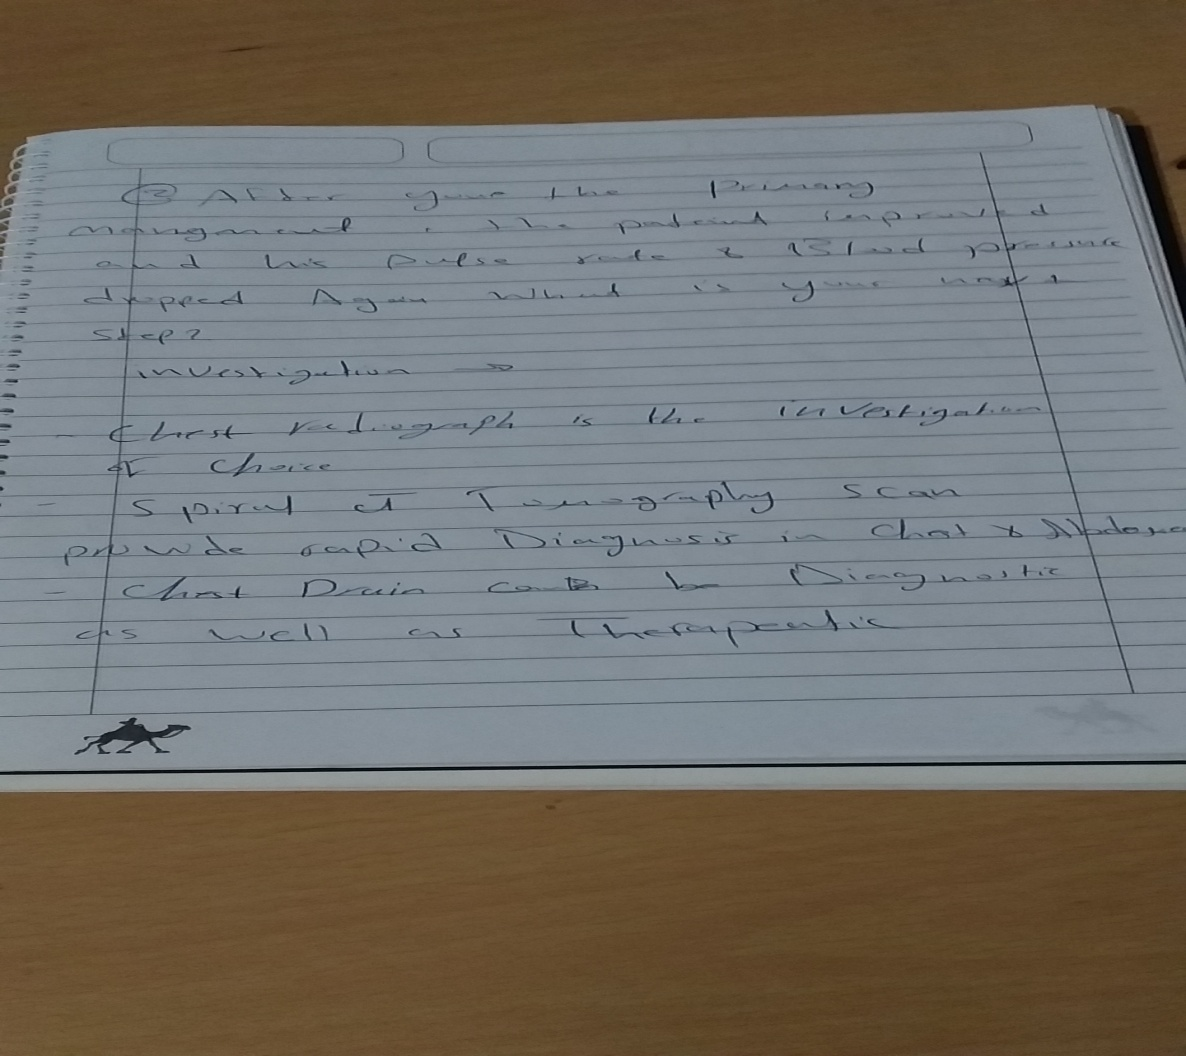 ③ After your the Primary
mangment , the pateint improved
and his pulse rate & Blood pressure
dropped Again What is your next
step?
investigation →
- Chest radiograph is the investigation
of choice
- Spiral CT Tomography scan
provide rapid Diagnosis in Chest &
- Chest Drain can be Diagnostic
as well as Therapeutic